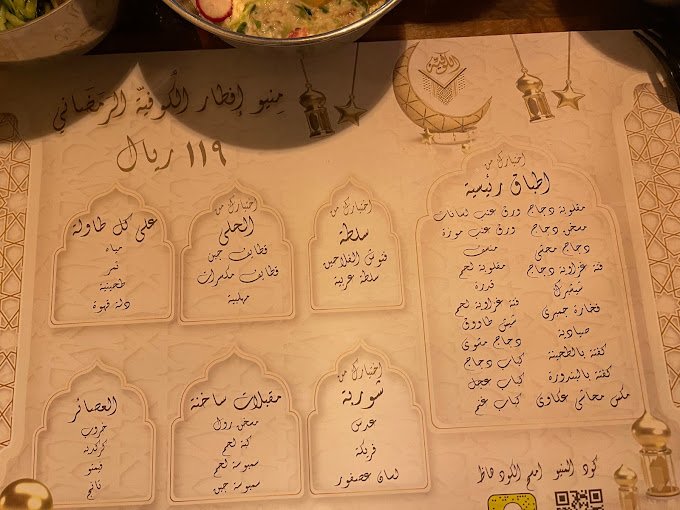 الكوفية
منيو إفطار الكوفية الرمضاني
١١٩ ريال
اختيارك من
اطباق رئيسية
مقلوبة دجاج
ورق عنب لسانات
مسخن دجاج
ورق عنب موزة
دجاج محشي
منسف
فتة غزاوية دجاج
مقلوبة لحم
شيشبرك
قدرة
فخارة جمبري
فتة غزاوية لحم
صيادية
شيش طاووق
كفتة بالطحينة
دجاج مشوي
كفتة بالبندورة
كباب دجاج
مكس محاشي عكاوي
كباب عجل
كباب غنم
اختيارك من
سلطة
فتوش الفلاحين
سلطة عربية
اختيارك من
الحلى
قطايف جبن
قطايف مكسرات
مهلبية
على كل طاولة
مياه
تمر
طحينية
دلة قهوة
اختيارك من
شوربة
عدس
فريكة
لسان عصفور
مقبلات ساخنة
مسخن رول
كبة لحم
سمبوسة لحم
سمبوسة جبن
العصائر
خروب
كركديه
فيمتو
تانج
كود المنيو امسح الكود هاظ